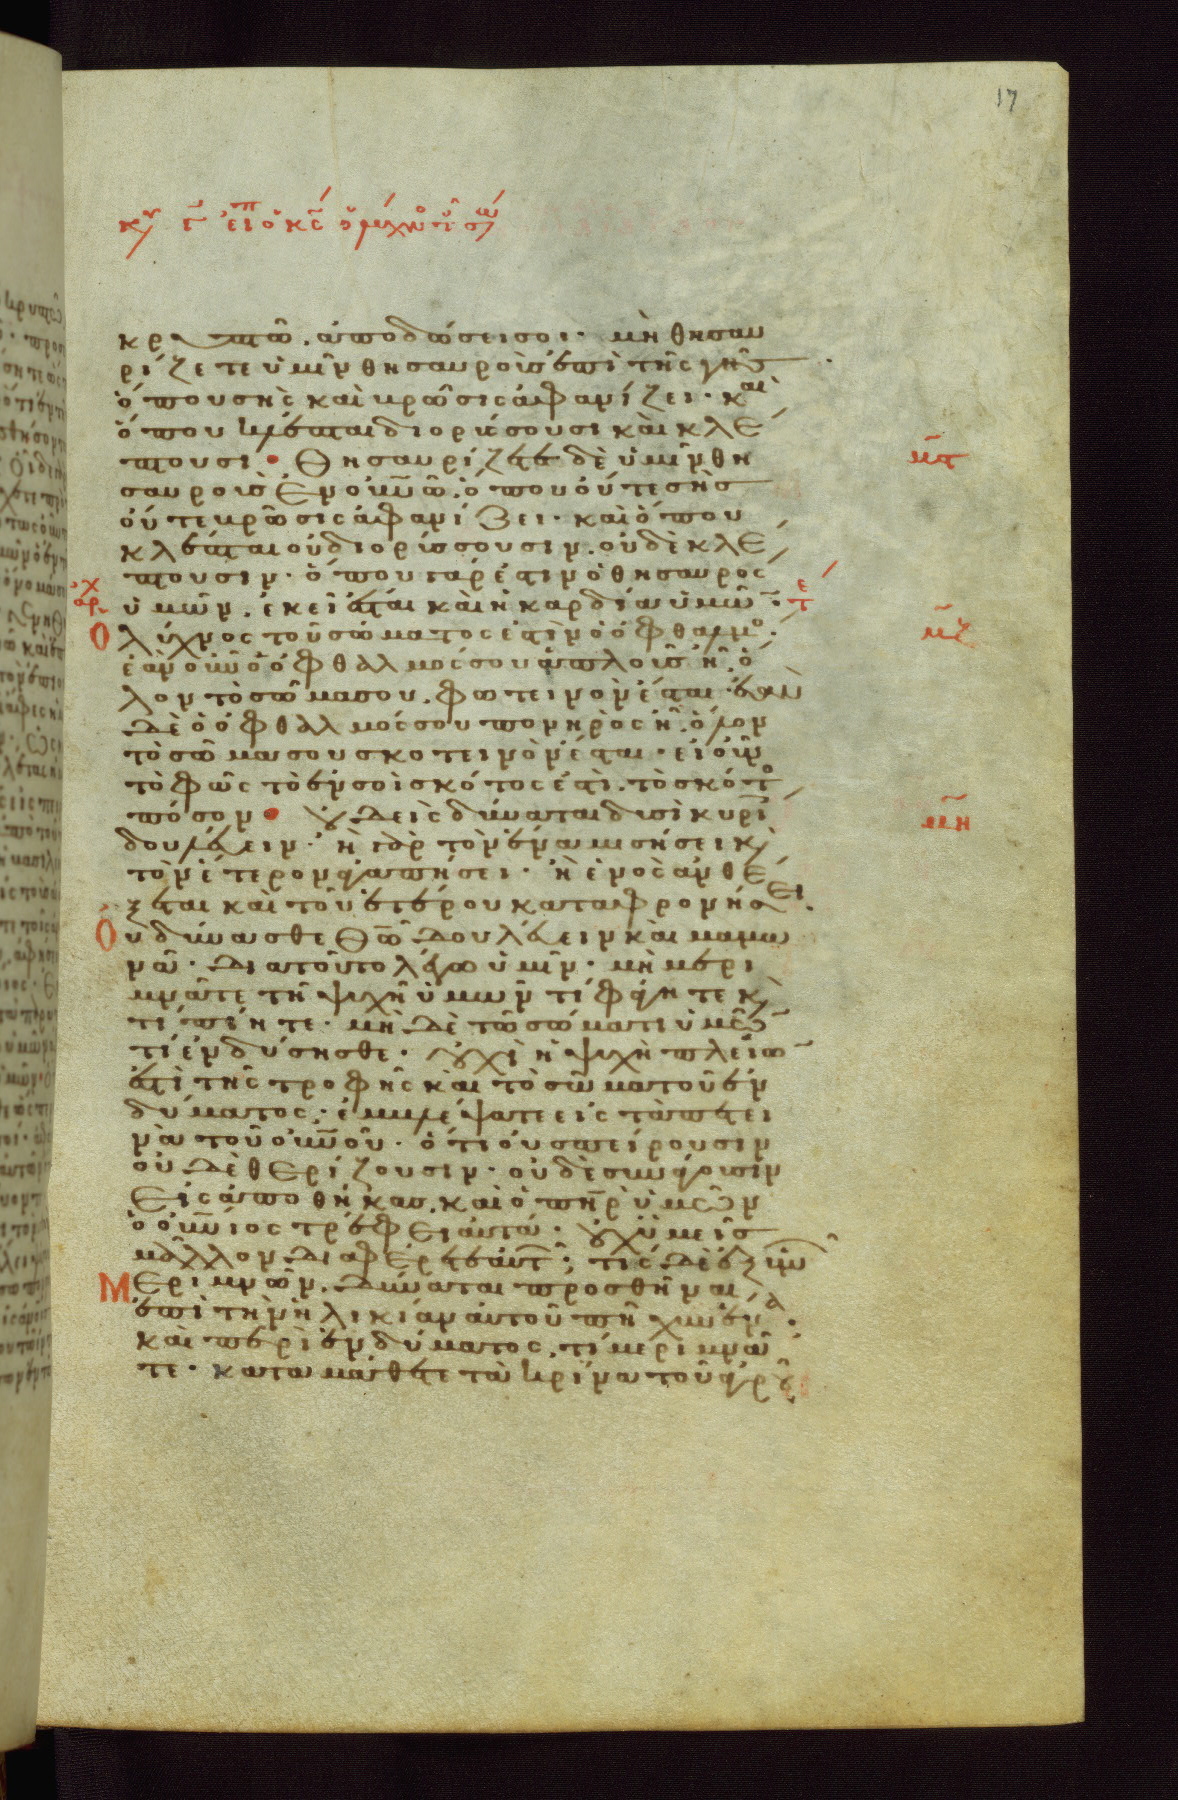 17
κυ γ̅ εἶπ ὁ κς̅ ὁ λύχνος τοῦ σω
κρυπτῶ. ἀποδώσει σοι· μὴ θησαυ
ρίζετε ὑμῖν θησαυροὺς ἐπὶ τῆς γῆς
ὅπου σὴς καὶ βρῶσις ἀφανίζει· καὶ
ὅπου κλέπται διορύσσουσι καὶ κλέ
πτουσι· Θησαυρίζετε δὲ ὑμῖν θη
σαυροὺς ἐν οὐνῶ. ὅπου οὔτε σὴς
οὔτε βρῶσις ἀφανίζει· καὶ ὅπου
κλέπται οὐ διορύσσουσιν. οὐδὲ κλέ
πτουσιν· ὅπου γάρ ἐστιν ὁ θησαυρὸς
ὑμῶν. ἐκεῖ ἔσται καὶ ἡ καρδία ὑμῶν·
Ὁ λύχνος τοῦ σώματος ἐστὶν ὁ ὀφθαλμός·
ἐὰν οὖν ὁ ὀφθαλμός σου ἁπλοῦς ἦ. ὅ
λον τὸ σῶμα σου. φωτεινὸν ἔσται· ἐὰν
δὲ ὁ ὀφθαλμός σου πονηρὸς ἦ. ὅλον
τὸ σῶμα σου σκοτεινὸν ἔσται· εἰ οὖν
τὸ φῶς τὸ ἐν σοὶ σκότος ἐστὶ. τὸ σκότος
πόσον· οὐδεὶς δύναται δυσὶ κυρίοις
δουλεύειν· ἢ γὰρ τὸν ἕνα μισήσει κὶ
τὸν ἕτερον ἀγαπήσει· ἢ ἑνὸς ἀνθέ
ξεται καὶ τοῦ ἑτέρου καταφρονήσει.
Οὐ δύνασθε Θῶ δουλεύειν καὶ μαμω
νᾶ· Διατοῦτο λέγω ὑμῖν· μὴ μερι
μνᾶτε τῆ ψυχῆ ὑμῶν τί φάγητε κὶ
τί πίητε· μὴ δὲ τῶ σώματι ὑμῶν
τί ἐνδύσησθε· οὐχὶ ἡ ψυχὴ πλεῖόν
ἐστὶ τῆς τροφῆς καὶ τὸ σῶμα τοῦ ἐν
δύματος· ἐμβλέψατε εἰς τὰ πετει
νὰ τοῦ οὐνοῦ· ὅτι οὐ σπείρουσιν
οὐδὲ θερίζουσιν· οὐδὲ συνάγουσιν
εἰς ἀποθήκας. καὶ ὁ πηρ ὑμῶν
ὁ οὐνιος τρέφει αὐτά· οὐχ ὑμεῖς
μᾶλλον διαφέρετε αὐτῶν; τίς δὲ ἐξ ὑμῶν
Μεριμνῶν. δύναται προσθῆναι
ἐπὶ τὴν ἡλικίαν αὐτοῦ πῆχυν ἕνα·
καὶ περὶ ἐνδύματος. τί μεριμνᾶ
τε· καταμάθετε τὰ κρίνα τοῦ ἀγροῦ